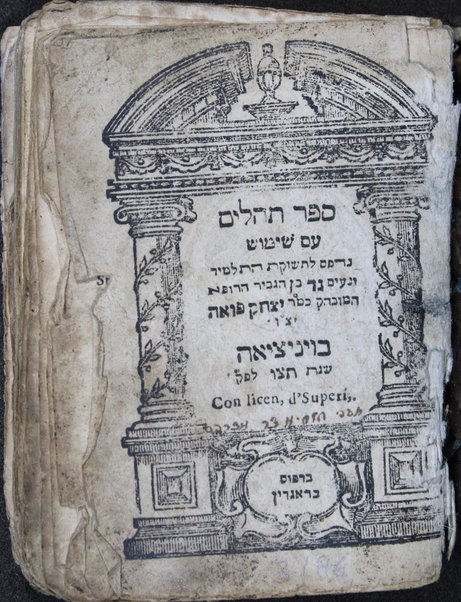 ספר תהלים
עם שימוש
נדפס לתשוקת התלמיד
ונעים גד בן הגביר הרופא
המובהק כמ"ר יצחק פואה
יצ"ו
בויניציאה
שנת תצו לפ"ק
Con licen, d'Superi,.
ברפוס
בראגדין